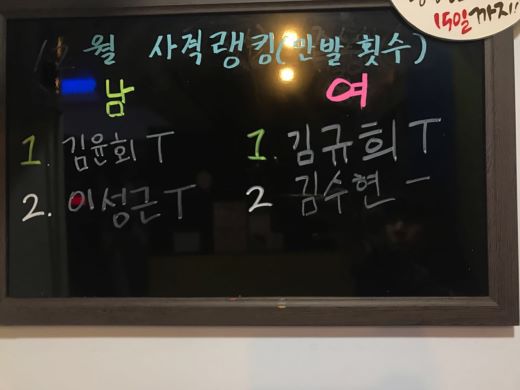 15일까지!!
월 사격랭킹(만발 횟수)
남
여
1. 김윤회 T
1. 김규희 T
2. 이성근 T
2 김수현 一